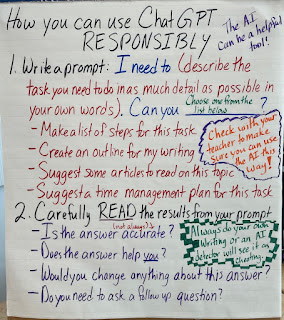 How you can use ChatGPT
RESPONSIBLY
The AI
can be a helpful
tool!
1. Write a prompt: I need to (describe the
task you need to do in as much detail as possible in
your own words). Can you Choose one from the list below ?
- Make a list of steps for this task
- Create an outline for my writing
- Suggest some articles to read on this topic
- Suggest a time management plan for this task
Check with your
teacher to make
sure you can use
the AI this
way!
2. Carefully READ the results from your prompt
- Is the answer accurate? (not always!)
- Does the answer help you?
- Would you change anything about this answer?
- Do you need to ask a follow up question?
Always do your own
writing or an AI
detector will see it as
cheating.